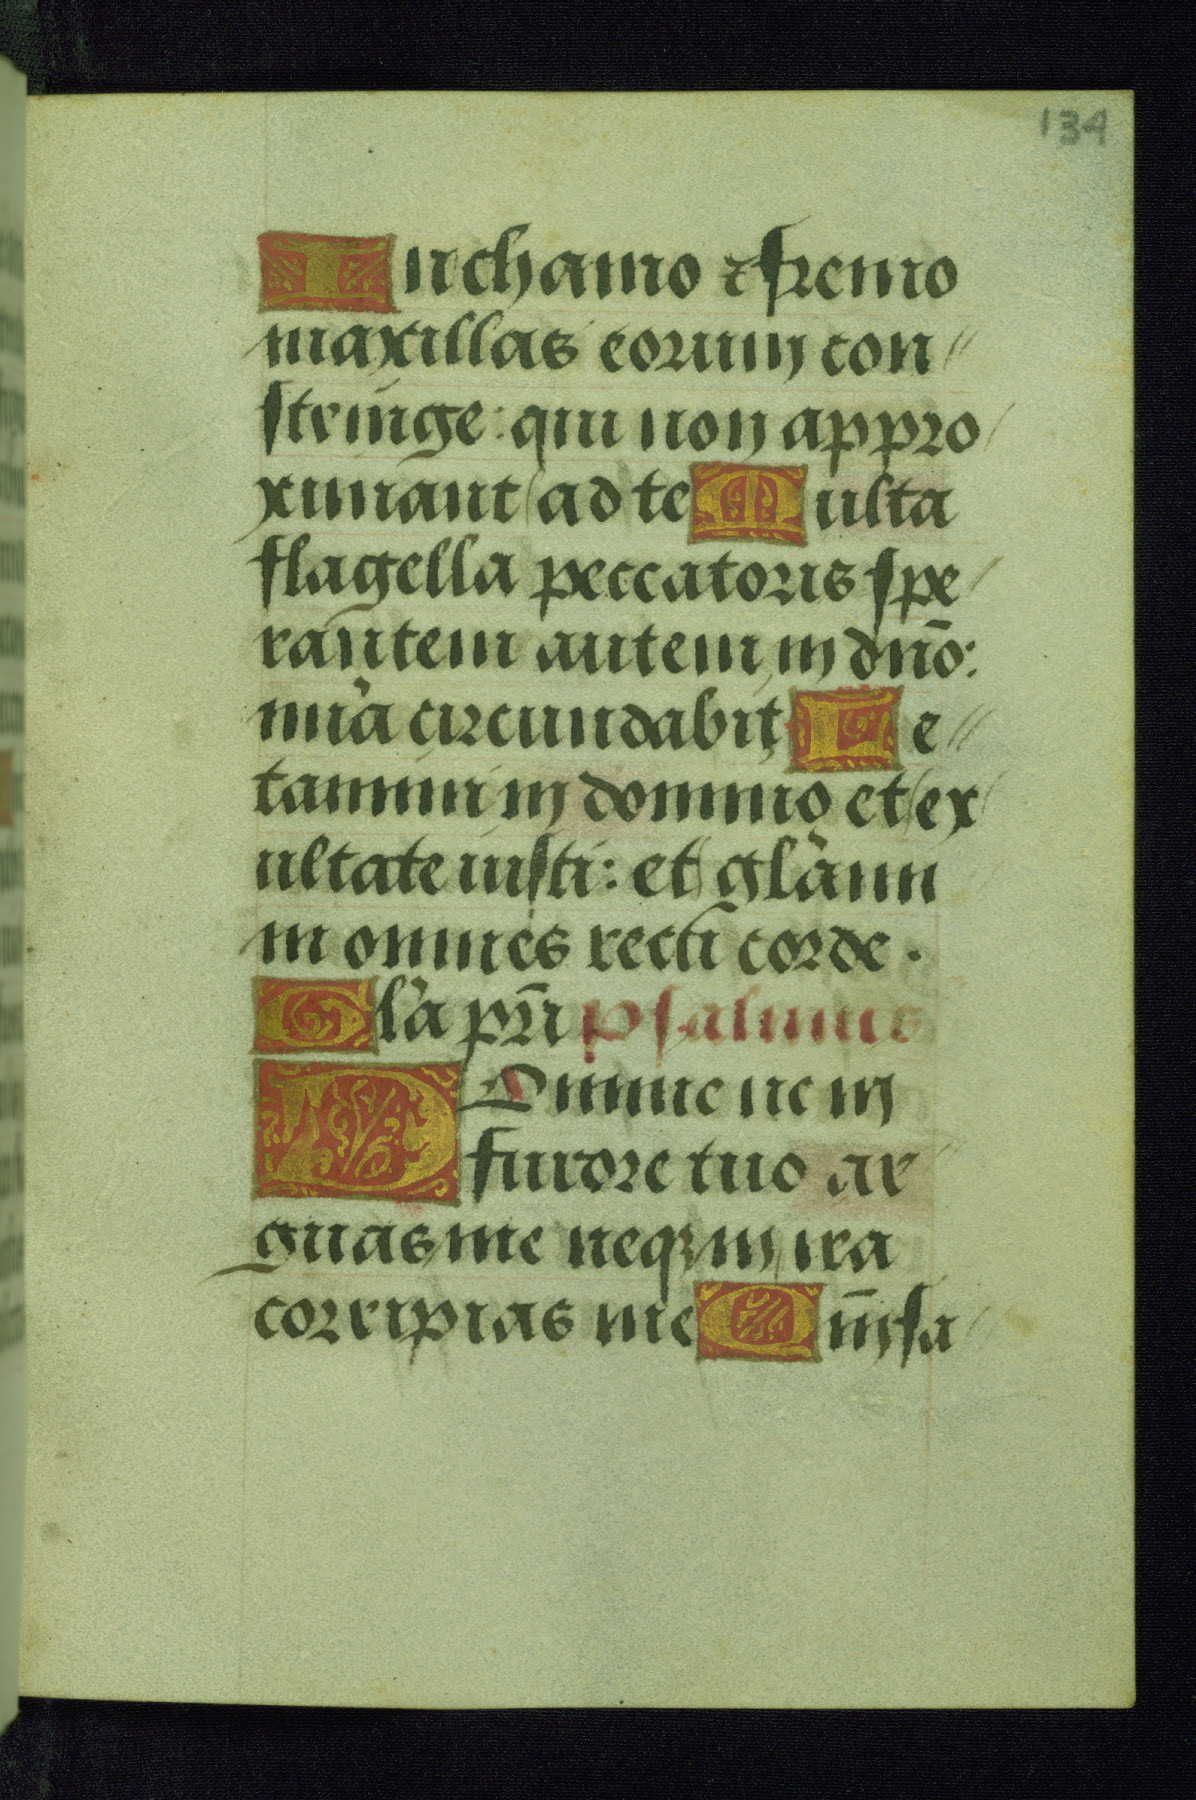 134
In chamo ⁊ freno
maxillas eorum con
stringe: qui non appro
ximant ad te Multa
flagella peccatoris spe
rantem autem in dño:
mia circundabit Le
tamini in domino et ex
ultate iusti: et glâmi
ni omnes recti corde.
Gla pri psalmus
Domine ne in
furore tuo ar
guas me neqȝ in ira
corripias me Qm̄ sa